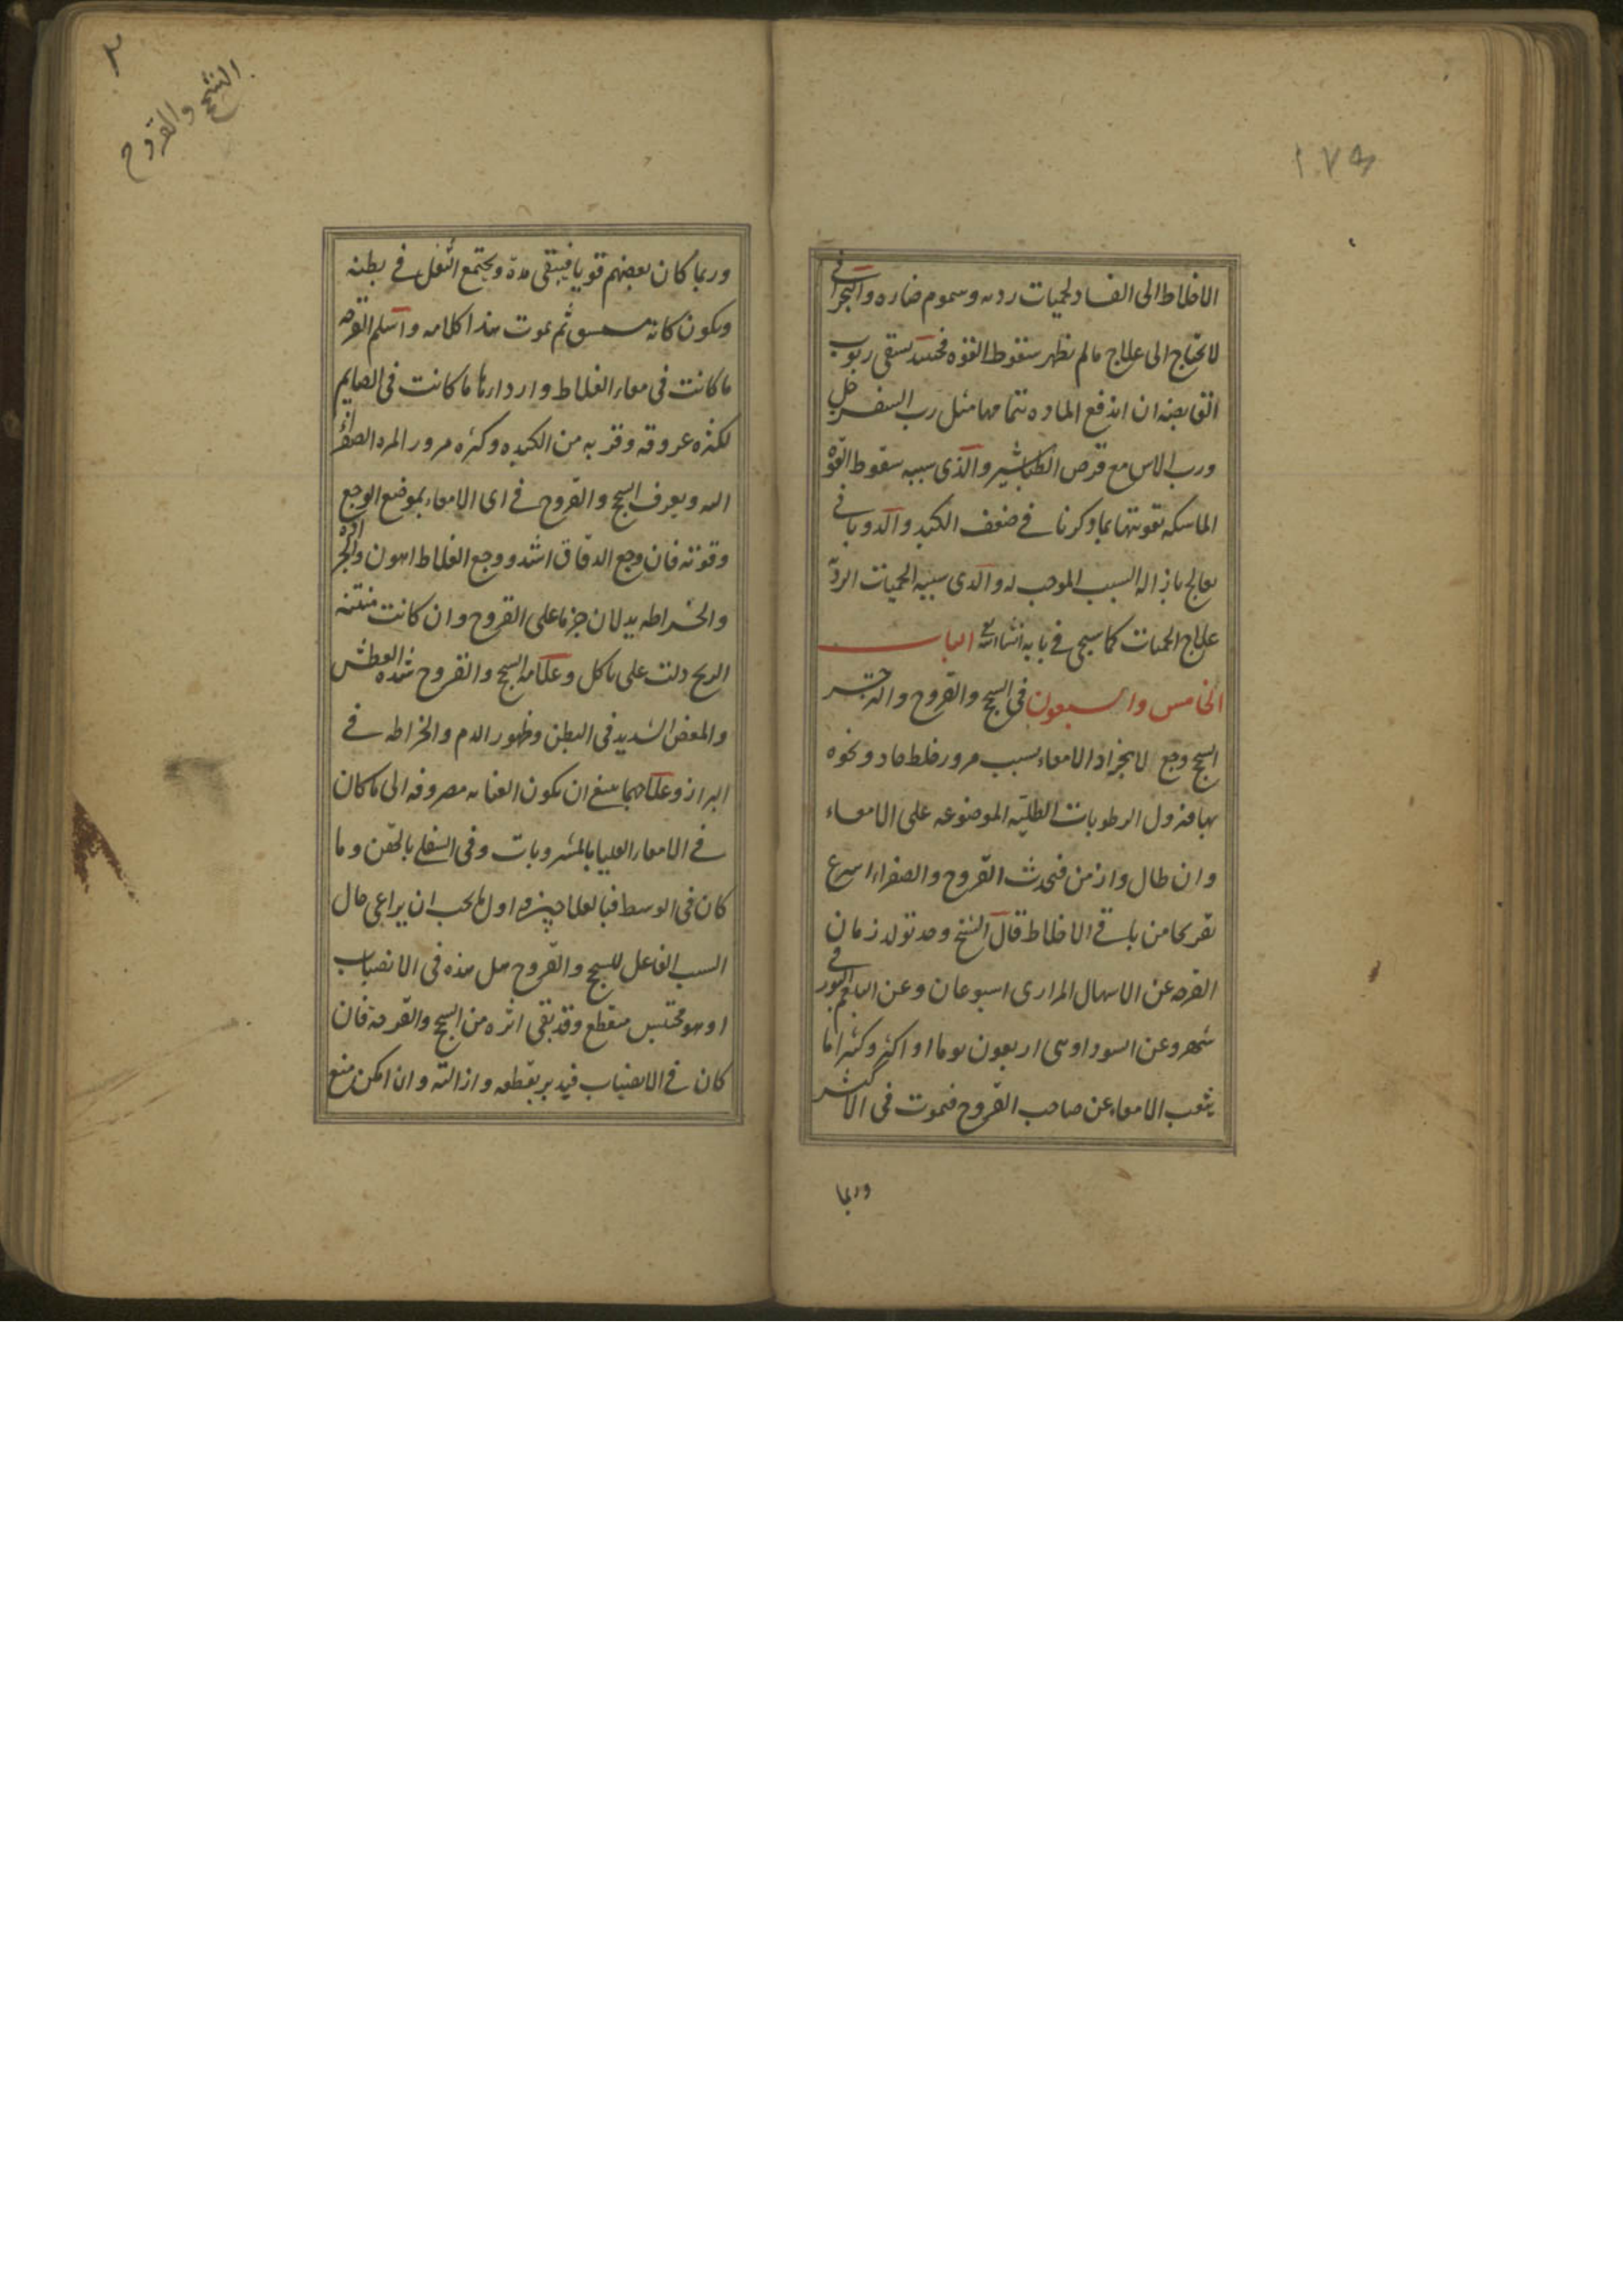 ١٧٥
الاخلاط الى الفساد لحميات رديه وسموم ضاره والبحراني
لا يحتاج الى علاج مالم يظهر سقوط القوه فحينئذ يسقى ربوب
القابضه ان اندفع الماده بتمامها مثل رب السفرجل
ورب الاس مع قرص الطباشير والذى سببه سقوط القوة
الماسكه تقويتها بما ذكرنا فى ضعف الكبد والذوبانى
يعالج بازاله السبب الموجب له والذى سببه الحميات الرديّة
علاج الحميات كما سيجى فى بابه انشاالله تع الباب
الخامس والسبعون فى السحج والقروح والزحير
السحج وجع لانجراد الامعاء بسبب مرور خلط حاد ونحوه
بها فنزول الرطوبات الطليّه الموضوعه على الامعاء
وان طال وازمن فتحدث القروح والصفراء اسرع
تقريحا من باقى الاخلاط قال الشيخ وحد تولد زمان
القرحه عن الاسهال المرارى اسبوعان وعن البلغم البورقى
شهر وعن السوداوى اربعون يوما او اكثر وكثيرا ما
يثقب الامعاء عن صاحب القروح فيموت فى الاكثر
وربما
السحج والقروح
وربما كان بعضهم قويا فيبقى مدة ويجتمع الثفل فى بطنه
ويكون كانه مستسق ثم يموت هذا كلامه واسلم القرحه
ما كانت فى معاء الغلاط واردارها ما كانت فى الصايم
لكثره عروقه وقربه من الكبد وكثره مرور المره الصفراء
اليه ويعرف السحج والقروح فى اى الامعاء بموضع الوجع
وقوته فان وجع الدقاق اشد ووجع الغلاط اهون والجرادة
والخراطه يدلان جزما على القروح وان كانت منتنه
الريح دلت على تاكل وعلامه السحج والقروح شده العطش
والمغص الشديد فى البطن وظهور الدم والخراطه فى
البراز وعلاجهما ينبغى ان يكون العنايه مصروفه الى ما كان
فى الامعاء العليا بالمشروبات وفى السفلى بالحقن وما
كان فى الوسط فبالعلاجين واولها يجب ان يراعى حال
السبب الفاعل للسحج والقروح هل هذه فى الانصباب
او هو محتبس منقطع وقد بقى اثره من السحج والقرحة فان
كان فى الانصباب فيدبر بقطعه وازالته وان امكن منع